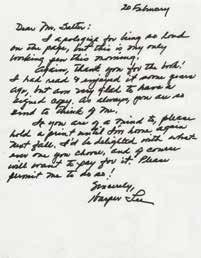 20 February
Dear Mr. :
I apologize for being so loud
on the page, but this is my only
working pen this morning.
Again, thank you for the book!
I had read & enjoyed it some years
ago, but am very glad to have a
signed copy. As always you are so
kind to think of me.
If you are of a mind to, please
hold a print until I'm home again
next fall. I'd be delighted with what
ever one you choose, and of course
will want to pay for it. Please
permit me to do so!
Sincerely,
Harper Lee